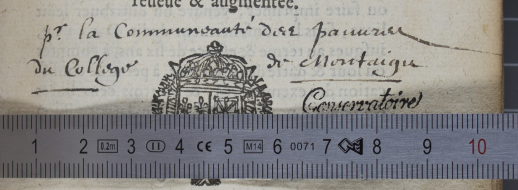 reveue & augmentée.
pr. la Communeauté des pauvres
du College de Montaigu
Conservatoire
1 2 0.2m 3 II 4 CE 5 M14 6 0071 7 8 9 10